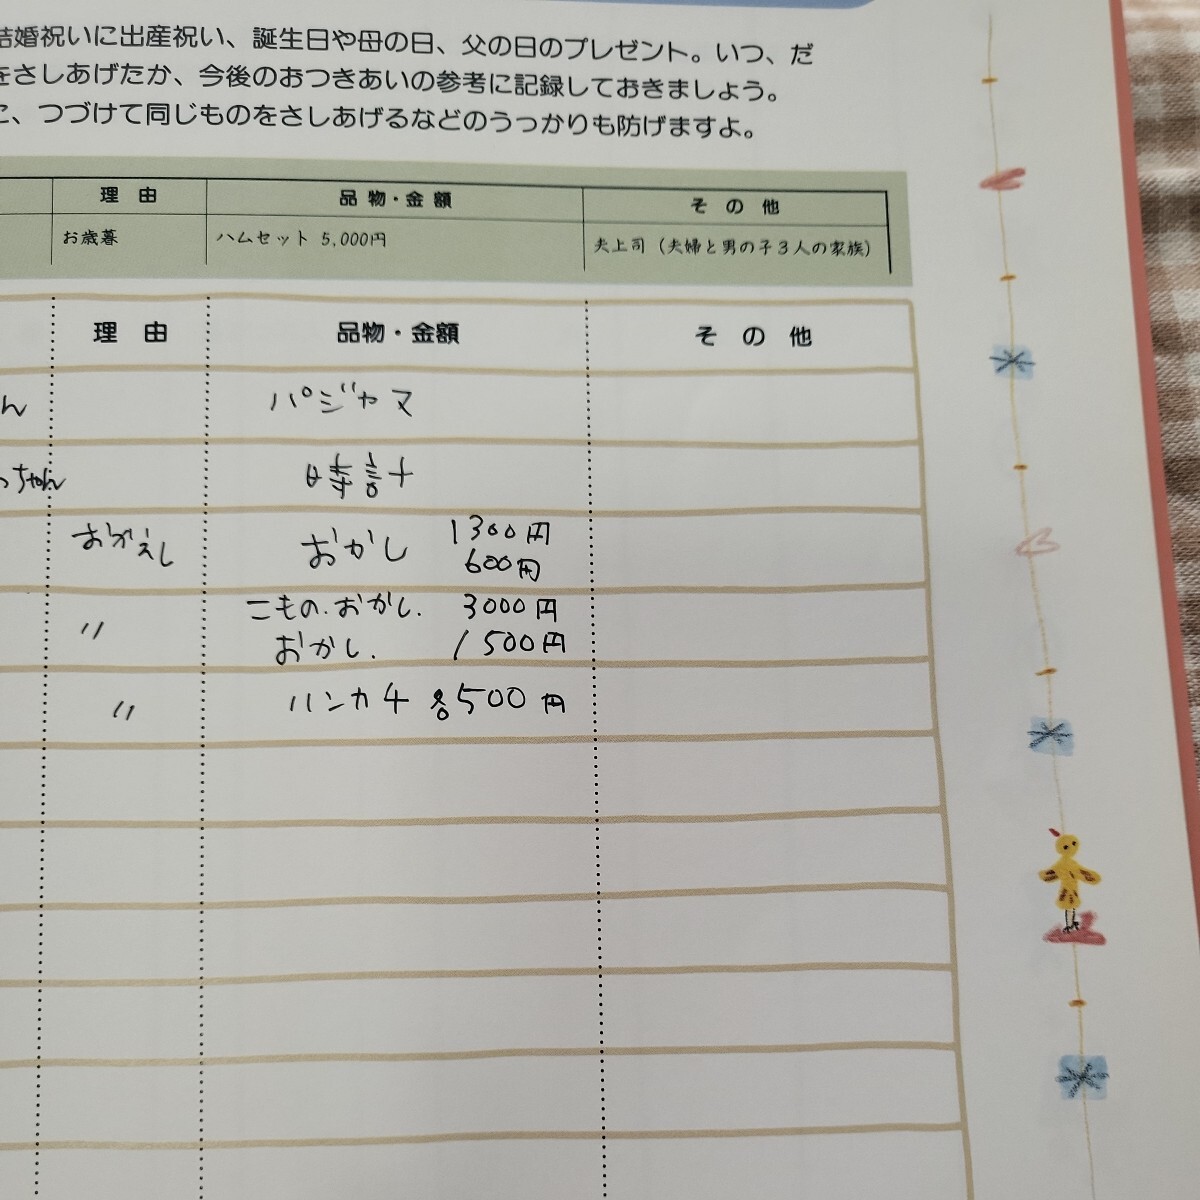 結婚祝いに出産祝い、誕生日や母の日、父の日のプレゼント。いつ、だ
をさしあげたか、今後のおつきあいの参考に記録しておきましょう。
に、つづけて同じものをさしあげるなどのうっかりも防げますよ。
理 由 品 物・金 額 そ の 他
お歳暮 ハムセット 5,000円 夫上司（夫婦と男の子3人の家族）
理 由 品物・金額 そ の 他
ん パジャマ
っちゃん 時計
おかえし おかし 1300円
600円
〃 こもの.おかし. 3000円
おかし. 1500円
〃 ハンカチ 各500円